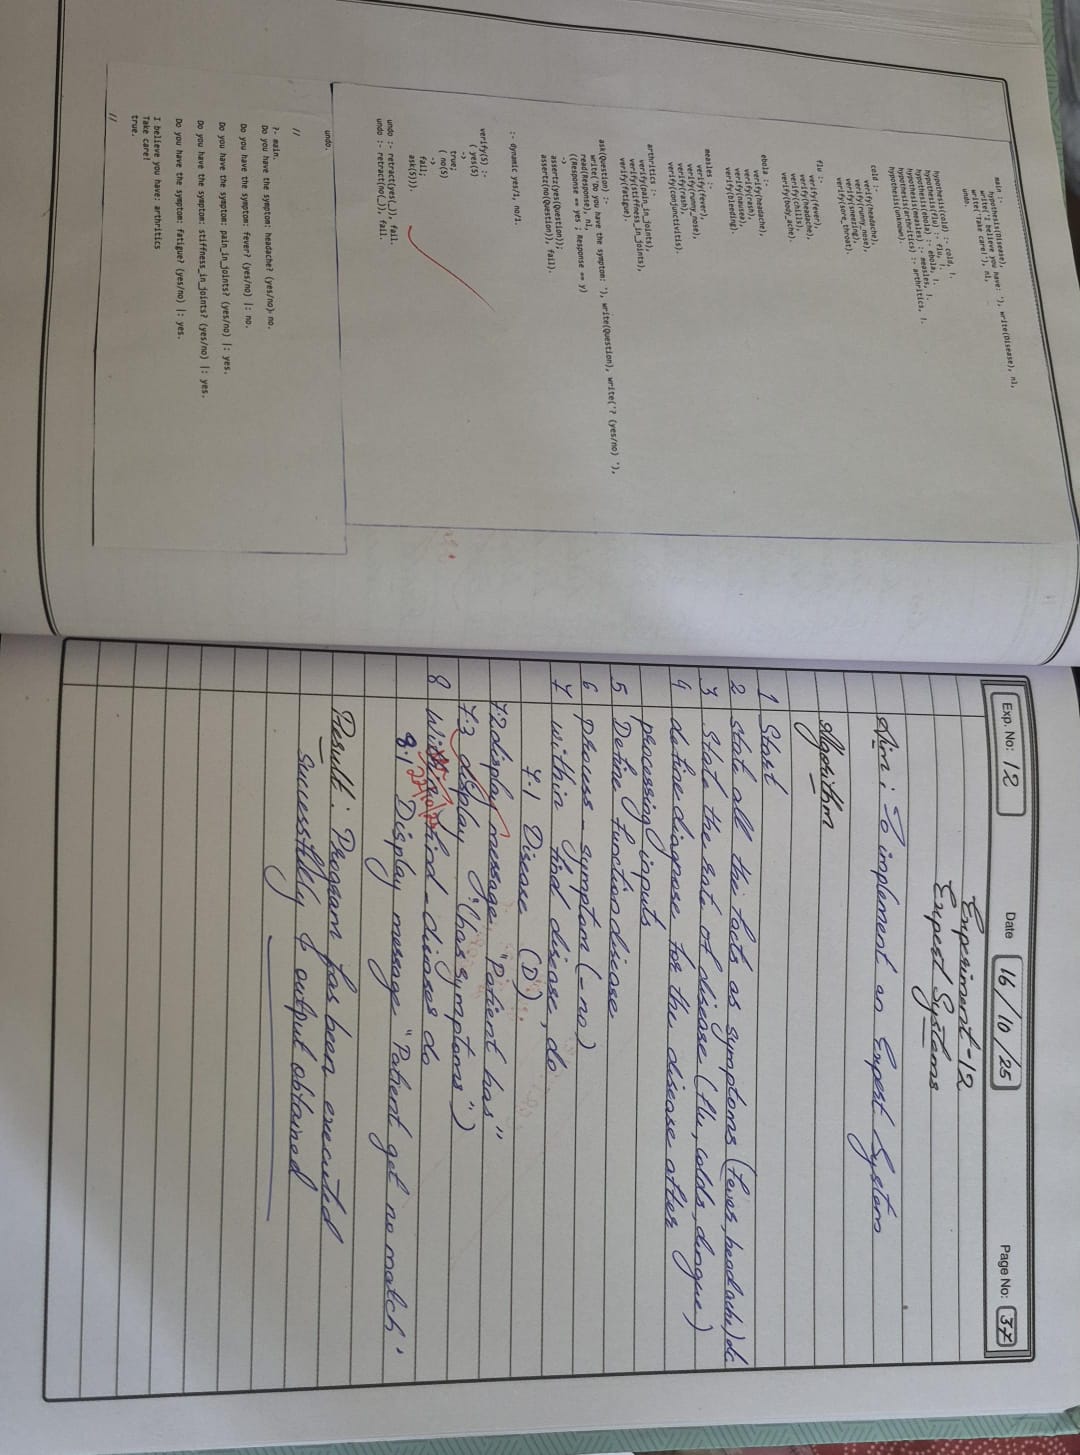 main :-
hypothesis(Disease),
write('I believe you have: '), write(Disease), nl,
write('Take care!'), nl,
undo.
hypothesis(cold) :- cold, !.
hypothesis(flu) :- flu, !.
hypothesis(ebola) :- ebola, !.
hypothesis(measles) :- measles, !.
hypothesis(arthritics) :- arthritics, !.
hypothesis(unknown).
cold :-
verify(headache),
verify(runny_nose),
verify(sneezing),
verify(sore_throat).
flu :-
verify(fever),
verify(headache),
verify(chills),
verify(body_ache).
ebola :-
verify(headache),
verify(rash),
verify(nausea),
verify(bleeding).
measles :-
verify(fever),
verify(runny_nose),
verify(rash),
verify(conjunctivitis).
arthritics :-
verify(pain_in_joints),
verify(stiffness_in_joints),
verify(fatigue).
ask(Question) :-
write('Do you have the symptom: '), write(Question), write('? (yes/no) '),
read(Response), nl,
((Response == yes ; Response == y)
->
assertz(yes(Question));
assertz(no(Question)), fail).
:- dynamic yes/1, no/1.
verify(S) :-
( yes(S)
->
true;
( no(S)
->
fail;
ask(S))).
undo :- retract(yes(_)), fail.
undo :- retract(no(_)), fail.
undo.
//
?- main.
Do you have the symptom: headache? (yes/no) no.
Do you have the symptom: fever? (yes/no) |: no.
Do you have the symptom: pain_in_joints? (yes/no) |: yes.
Do you have the symptom: stiffness_in_joints? (yes/no) |: yes.
Do you have the symptom: fatigue? (yes/no) |: yes.
I believe you have: arthritics
Take care!
true.
//
Exp. No: 12 Date 16/10/25 Page No: 37
Experiment-12
Expest Systems
Aim: To implement an Expest System
Algorithm
1 Start
2 State all the facts as symptoms (fever, headache) etc
3 State the rate of disease (flu, colds, dungue)
4 define diagnose for the disease after
processing inputs
5 Define function disease
6 Process-symptom (-no)
7 within find disease, do
7.1 Disease (D)
7.2 display message "Patient has"
7.3 display j:(has symptoms")
8 find-disease do
8.1 Display message "Patient get no match'
Result: Program has been executed
successfully & output obtained